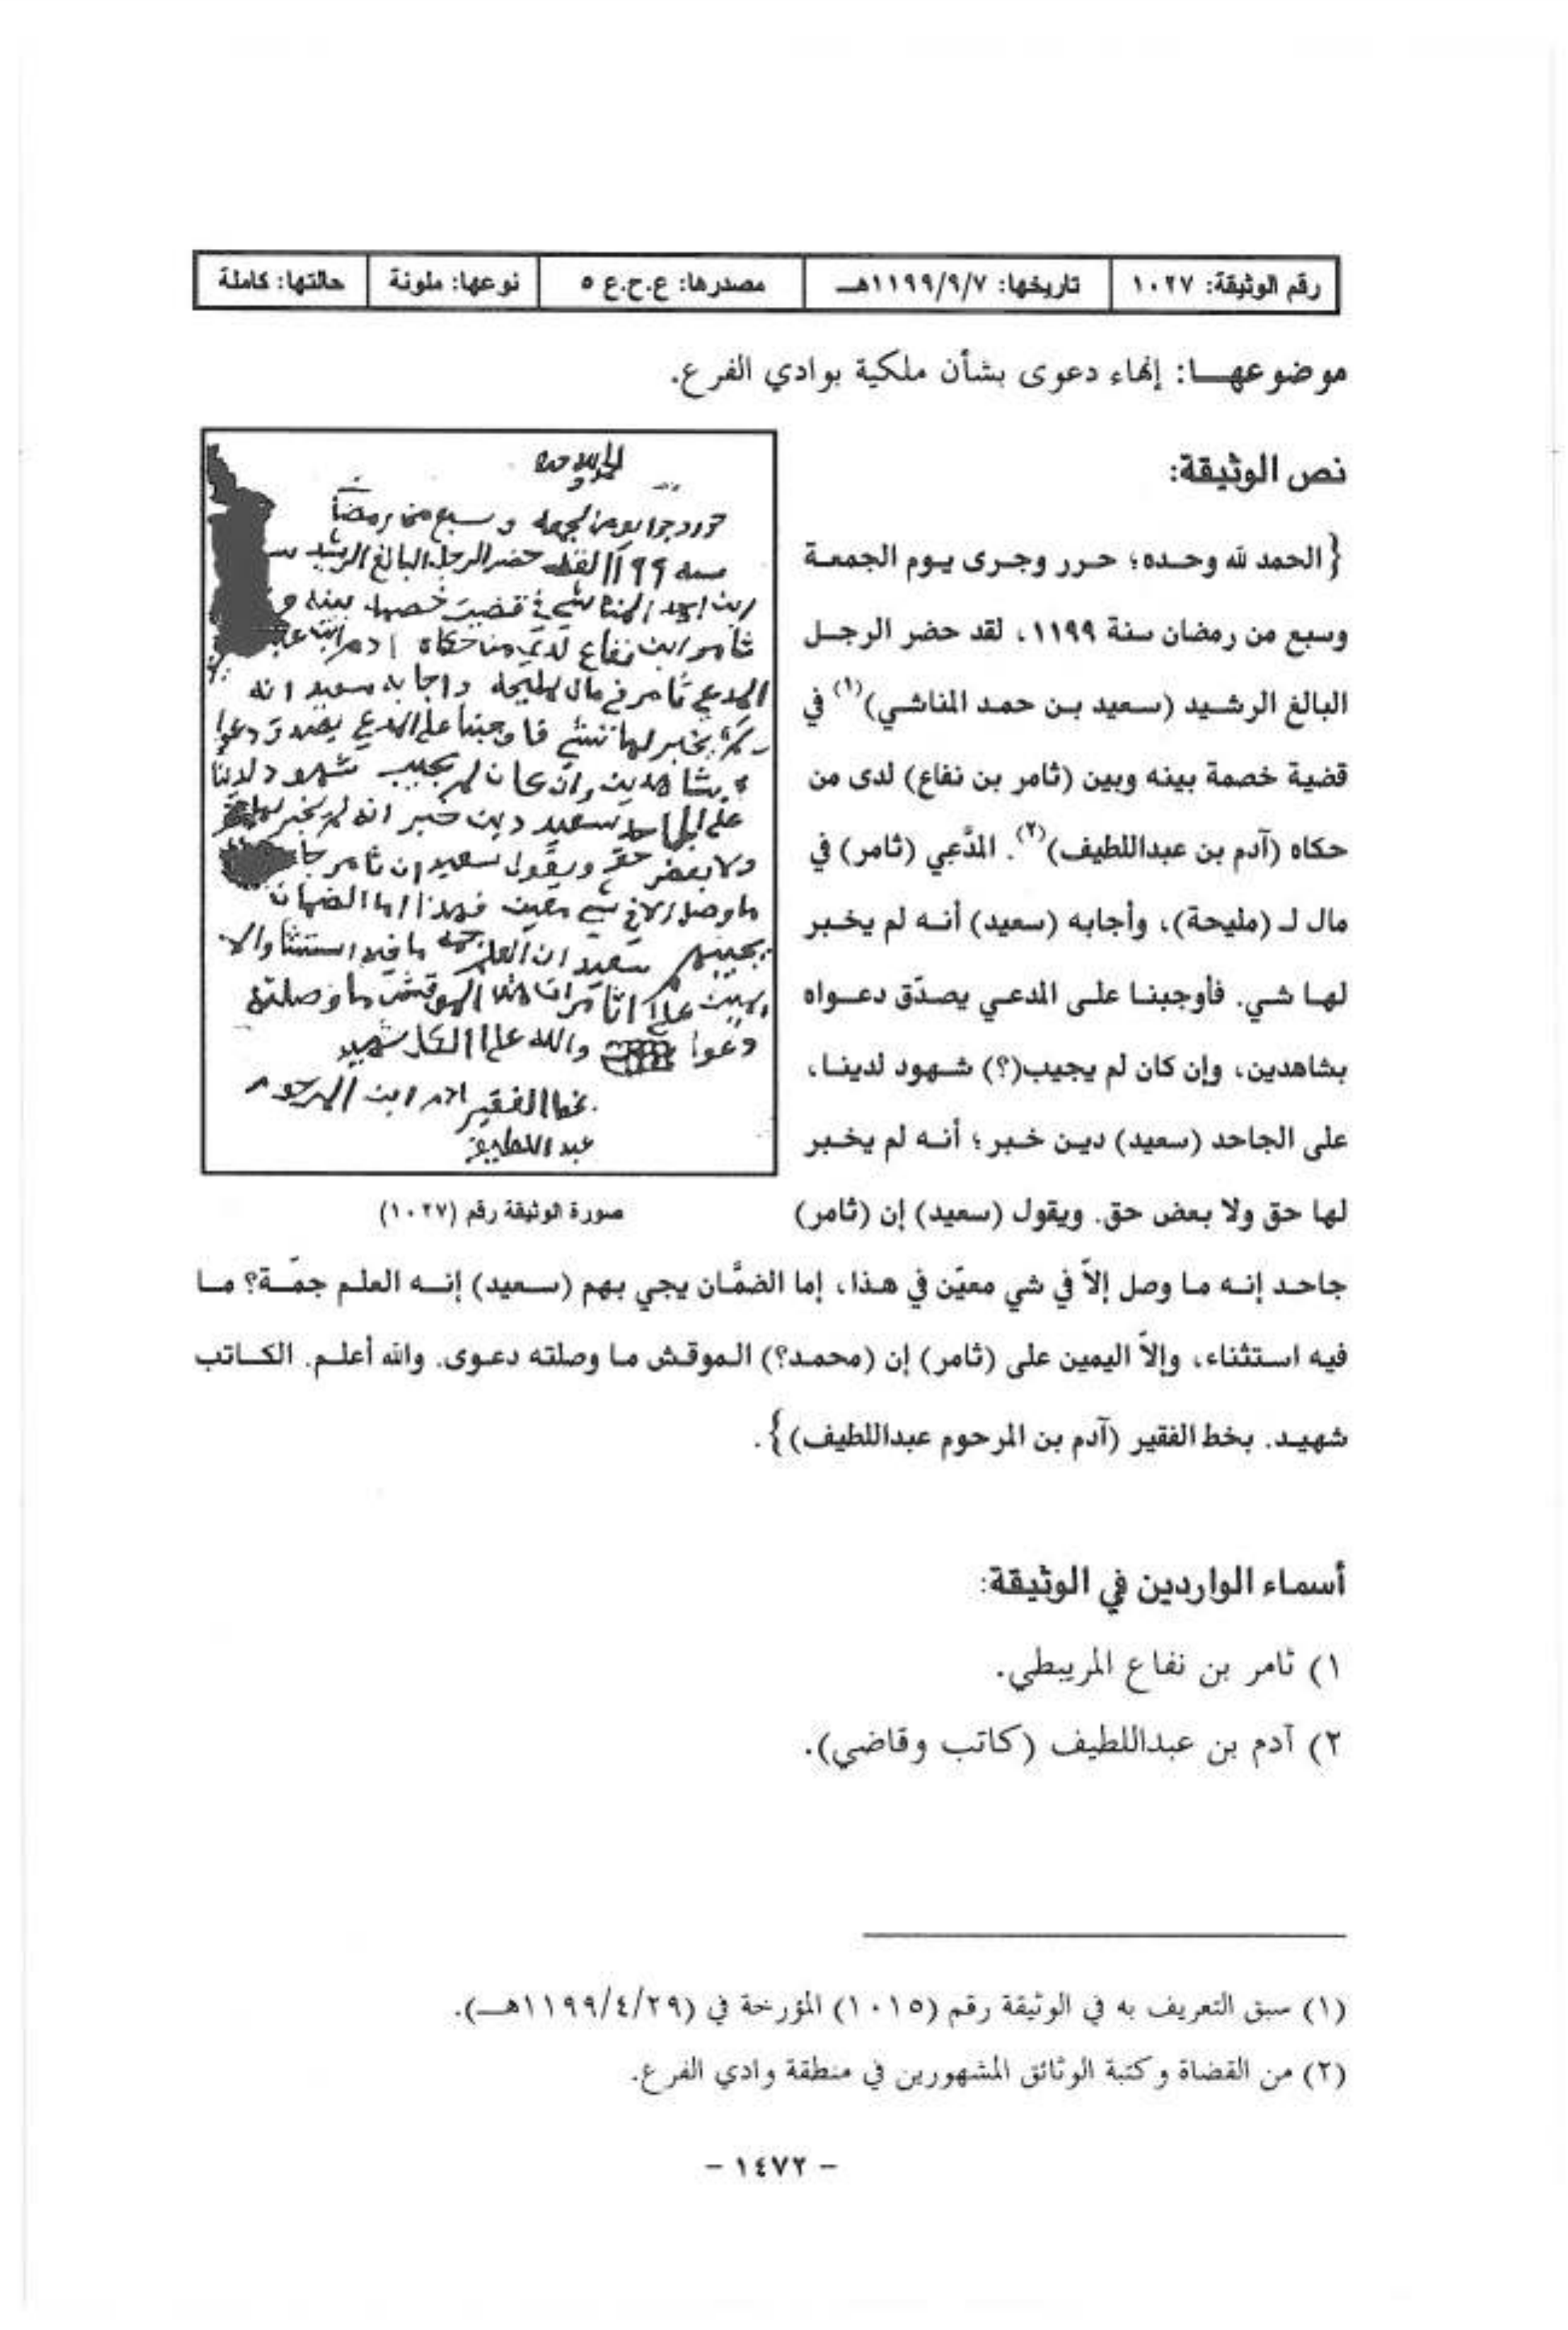 رقم الوثيقة: ١٠٢٧
تاريخها: ١١٩٩/٩/٧هـ
مصدرها: ع.ح.ع ٥
نوعها: ملونة
حالتها: كاملة
موضوعهـــا: إنهاء دعوى بشأن ملكية بوادي الفرع.
نص الوثيقة:
{الحمد لله وحـده؛ حـرر وجـرى يـوم الجمعـة
وسبع من رمضان سنة ١١٩٩، لقد حضر الرجـل
البالغ الرشـيد (سعيد بـن حمـد المناشـي)(١) في
قضية خصمة بينه وبين (ثامر بن نفاع) لدى من
حكاه (آدم بن عبداللطيف)(٢). المدَّعي (ثامر) في
مال لـ (مليحة)، وأجابه (سعيد) أنـه لم يخـبر
لهـا شـي. فأوجبنـا علـى المدعـي يصـدّق دعـواه
بشاهدين، وإن كان لم يجيب(؟) شـهود لدينـا،
على الجاحد (سعيد) ديـن خـبر؛ أنـه لم يخـبر
لها حق ولا بعض حق. ويقول (سعيد) إن (ثامر)
جاحـد إنـه مـا وصل إلاّ في شي معيّن في هـذا، إما الضمَّـان يجي بهم (سـعيد) إنـه العلـم جمّـة؟ مـا
فيه استثناء، وإلاّ اليمين على (ثامر) إن (محمـد؟) الـموقـش مـا وصلته دعـوى. والله أعلـم. الكـاتب
شهيـد. بخط الفقير (آدم بن المرحوم عبداللطيف)}.
الحمد لله وحده
حرر وجرا يوم الجمعه وسبع من رمضان
سنه ١١٩٩ لقد حضر الرجل البالغ الرشيد
ثامر ابن نفاع
المدعي ثامر في مال لمليحه واجابه سعيد انه
والله على الكل شهيد
بخط الفقير ادم ابن المرحوم
عبد اللطيف
صورة الوثيقة رقم (١٠٢٧)
أسماء الواردين في الوثيقة:
١) ثامر بن نفاع المريبطي.
٢) آدم بن عبداللطيف (كاتب وقاضي).
(١) سبق التعريف به في الوثيقة رقم (١٠١٥) المؤرخة في (١١٩٩/٤/٢٩هـ).
(٢) من القضاة وكتبة الوثائق المشهورين في منطقة وادي الفرع.
- ١٤٧٢ -